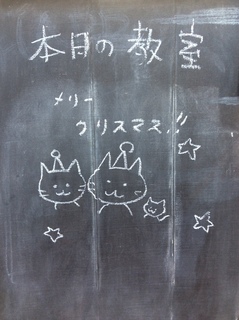 本日の教室
メリー
クリスマス!!